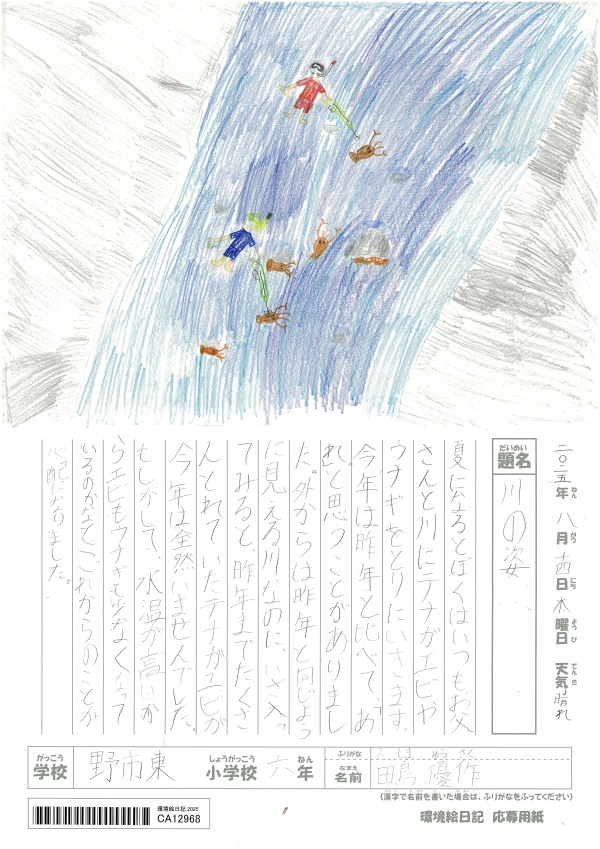 二〇二五年 八月 十四日 木曜日 天気 晴れ
ねん がつ にち ようび てんき
だいめい
題名 川の姿
夏になるとぼくはいつもお父
さんと川にテナガエビや
ウナギをとりにいきます。
今年は昨年と比べて、「あ
れ」と思うことがありまし
た。外からは昨年と同じよう
に見える川なのに、いざ入っ
てみると、昨年までたくさ
んとれていたテナガエビが
今年は全然いませんでした。
もしかして、水温が高いか
らエビもウナギも少なくなって
いるのかなとこれからのことが
心配になりました。
がっこう しょうがっこう ねん ふりがな
学校 野市東 小学校 六年
なまえ
名前 田島 優作
(漢字で名前を書いた場合は、ふりがなをふってください)
環境絵日記 2025
CA12968
環境絵日記 応募用紙